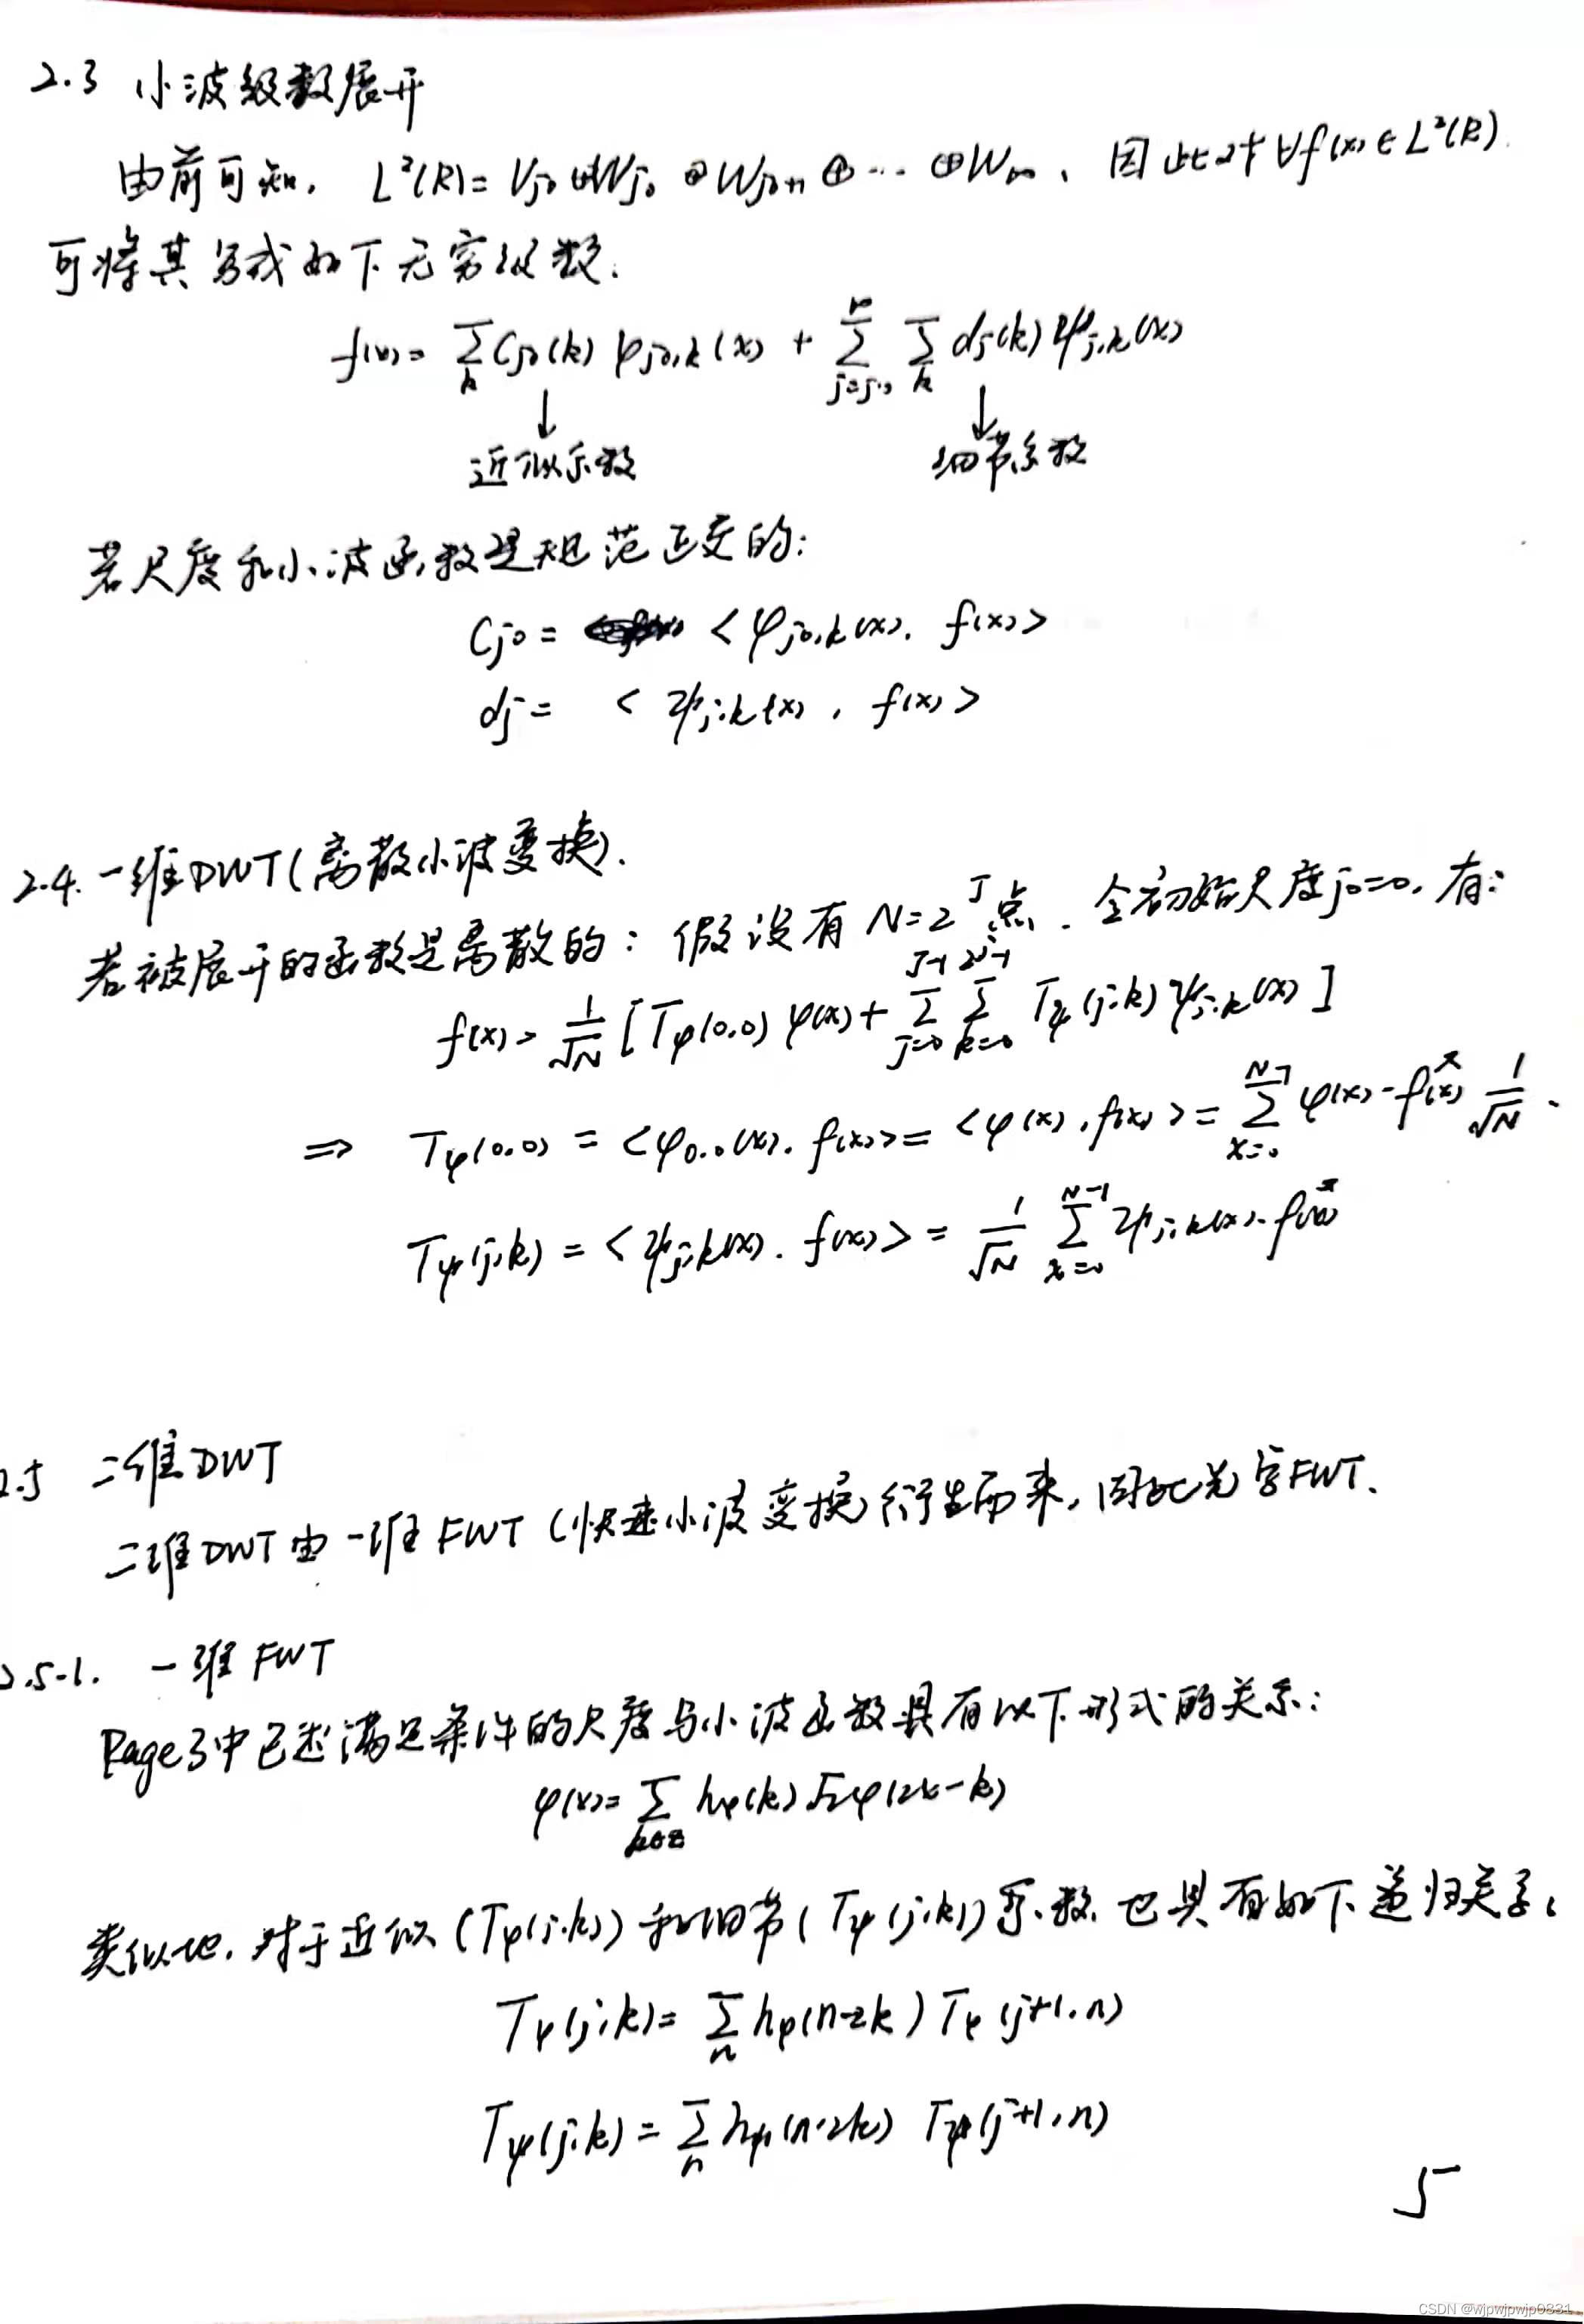 2.3 小波级数展开
由前可知, L²(R)=V_{j0}⊕W_{j0}⊕W_{j0+1}⊕…⊕W_∞, 因此对∀f(x)∈L²(R).
可将其写成如下无穷级数:
f(x)=∑_k C_{j0}(k) φ_{j0,k}(x) + ∑_{j=j0}^∞ ∑_k d_j(k) ψ_{j,k}(x)
↓ ↓
近似系数 细节系数
若尺度和小波函数是规范正交的:
C_{j0} = <φ_{j0,k}(x), f(x)>
d_j = <ψ_{j,k}(x), f(x)>
2.4. 一维DWT(离散小波变换).
若被展开的函数是离散的: 假设有 N=2^J 点. 令初始尺度j₀=0, 有:
f(x)= 1/√N [T_φ(0,0) φ(x)+ ∑_{j=0}^{J-1} ∑_{k=0}^{2^j-1} T_ψ(j,k) ψ_{j,k}(x)]
⇒ T_φ(0,0) = <φ_{0,0}(x), f(x)> = <φ(x), f(x)> = ∑_{x=0}^{N-1} φ(x)·f(x)^* 1/√N.
T_ψ(j,k) = <ψ_{j,k}(x), f(x)> = 1/√N ∑_{x=0}^{N-1} ψ_{j,k}(x)·f(x)^*
2.5 二维DWT
二维DWT由一维FWT(快速小波变换)衍生而来, 因此先写FWT.
2.5-1. 一维FWT
Page3中已述满足条件的尺度与小波函数具有以下形式的关系:
φ(x)=∑_{k∈Z} h_φ(k) √2 φ(2x-k)
类似地, 对于近似(T_φ(j,k))和细节(T_ψ(j,k))系数, 也具有如下递归关系:
T_φ(j,k)= ∑_n h_φ(n-2k) T_φ(j+1,n)
T_ψ(j,k)= ∑_n h_ψ(n-2k) T_ψ(j+1,n)
5
CSDN @wjpwjpwjp0831